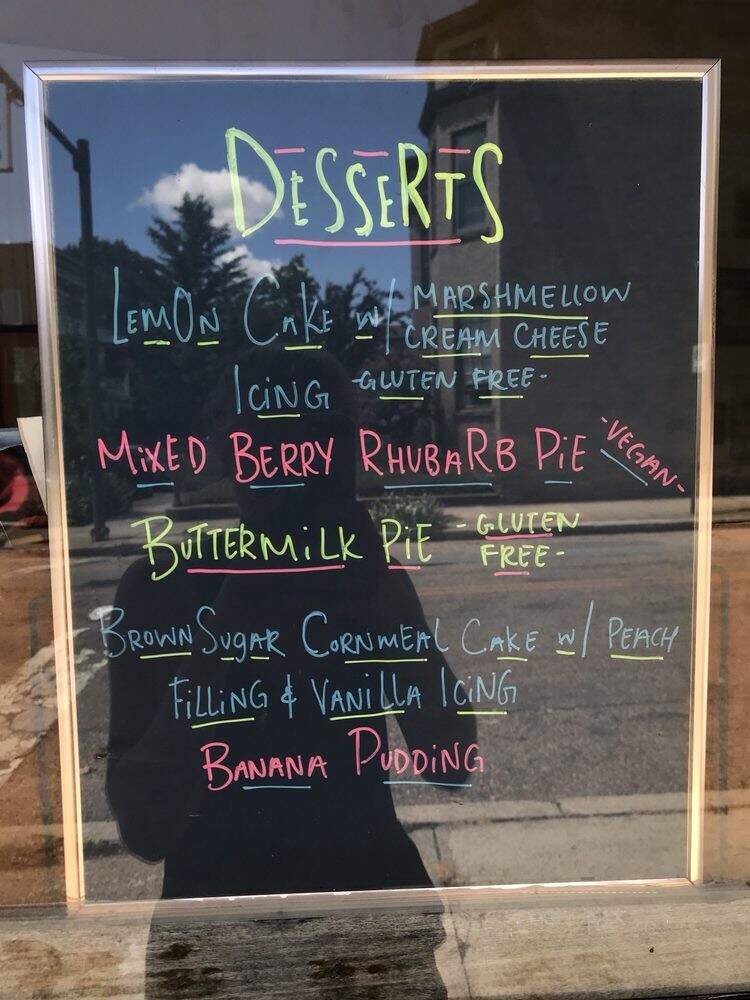 DESSERTS
LEMON CAKE w/ MARSHMELLOW
CREAM CHEESE
ICING -GLUTEN FREE-
MIXED BERRY RHUBARB PIE -VEGAN-
BUTTERMILK PIE -GLUTEN
FREE-
BROWN SUGAR CORNMEAL CAKE w/ PEACH
FILLING & VANILLA ICING
BANANA PUDDING